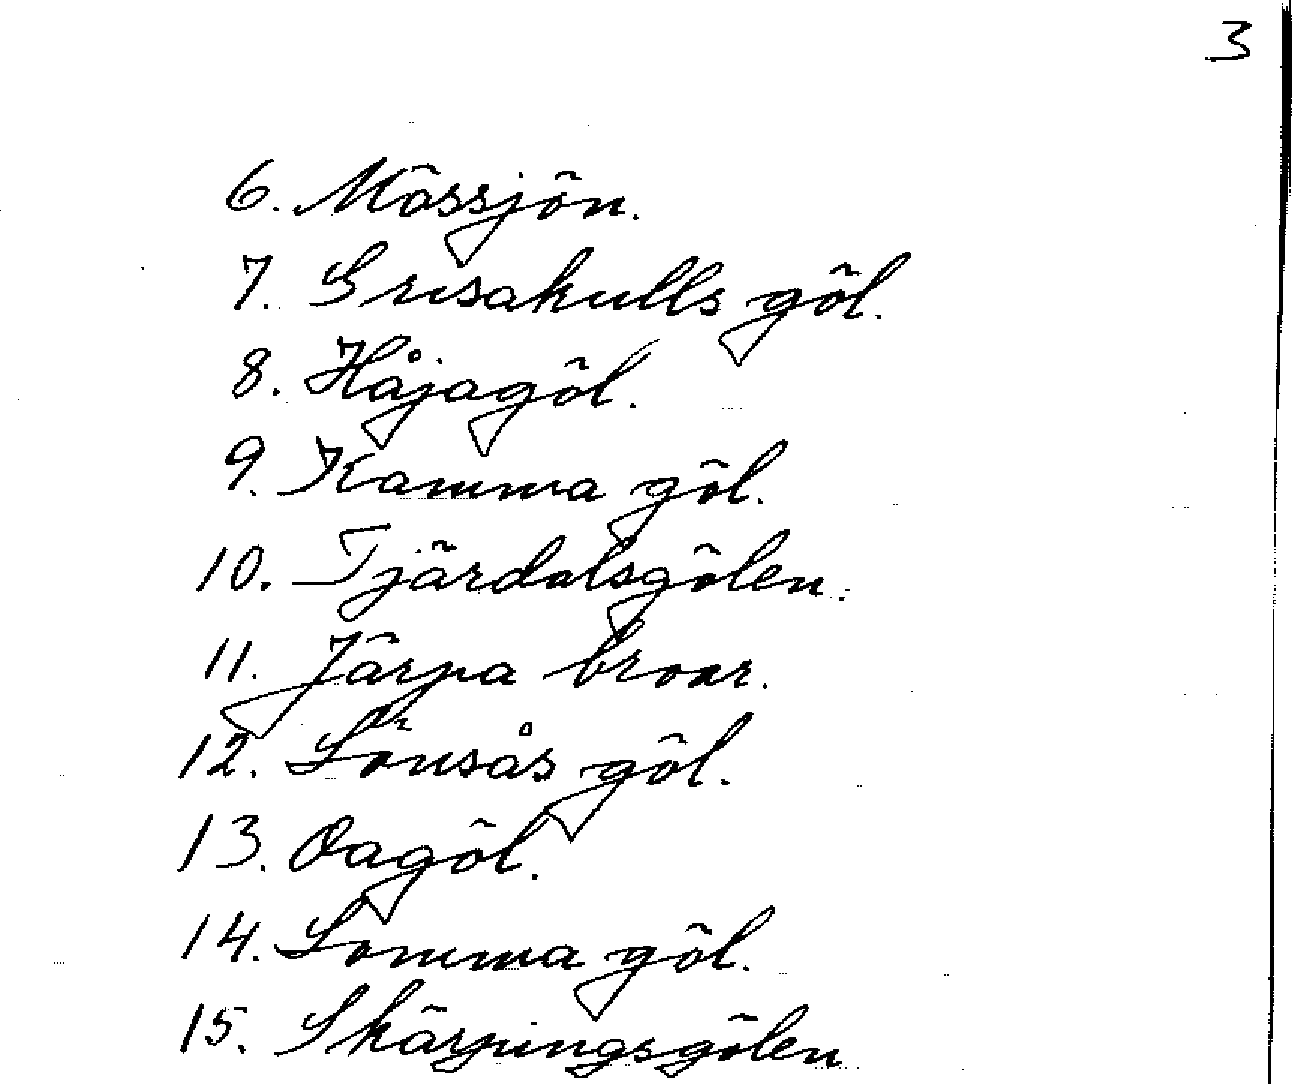 3
6. Mössjön.
7. Grisakulls göl.
8. Håjagöl.
9. Kamma göl.
10. Tjärdalsgölen.
11. Järpa broar.
12. Lönsås göl.
13. Oagöl.
14. Lomma göl.
15. Skärpingsgölen